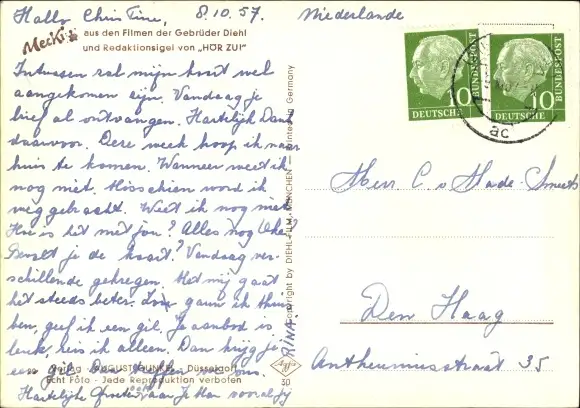 Hallo Christine, 8.10.57.
Mecki aus den Filmen der Gebrüder Diehl
und Redaktionsigel von „HÖR ZU!"
Intussen zal mijn kaart wel
aangekomen zijn. Vandaag je
brief al ontvangen. Hartelijk Dank
daarvoor. Deze week hoop ik naar
huis te komen. Wanneer weet ik
nog niet. Misschien word ik
weg gebracht. Weet ik nog niet.
Hoe is het met jou? Alles nog Oke?
Bevalt je de kaart? Vandaag ver-
schillende gekregen. Met mij gaat
het steeds beter. gaun ik thuis
ben, geef ik een gil. Je aanbod is
leuk, reis ik alleen. Dan krijg je
een gil. koffer
Verlag AUGUST GUNKEL Düsseldorf
Echt Foto - Jede Reproduktion verboten
Hartelijke Je
RINA.
Copyright by DIEHL-FILM, MÜNCHEN — Printed in Germany
Agfa
30
Niederlande
10
DEUTSCHE
BUNDESPOST
10
DEUTSCHE
BUNDESPOST
ac
Herr C. v Made Smeets
Den Haag
Antheunisstraat 35